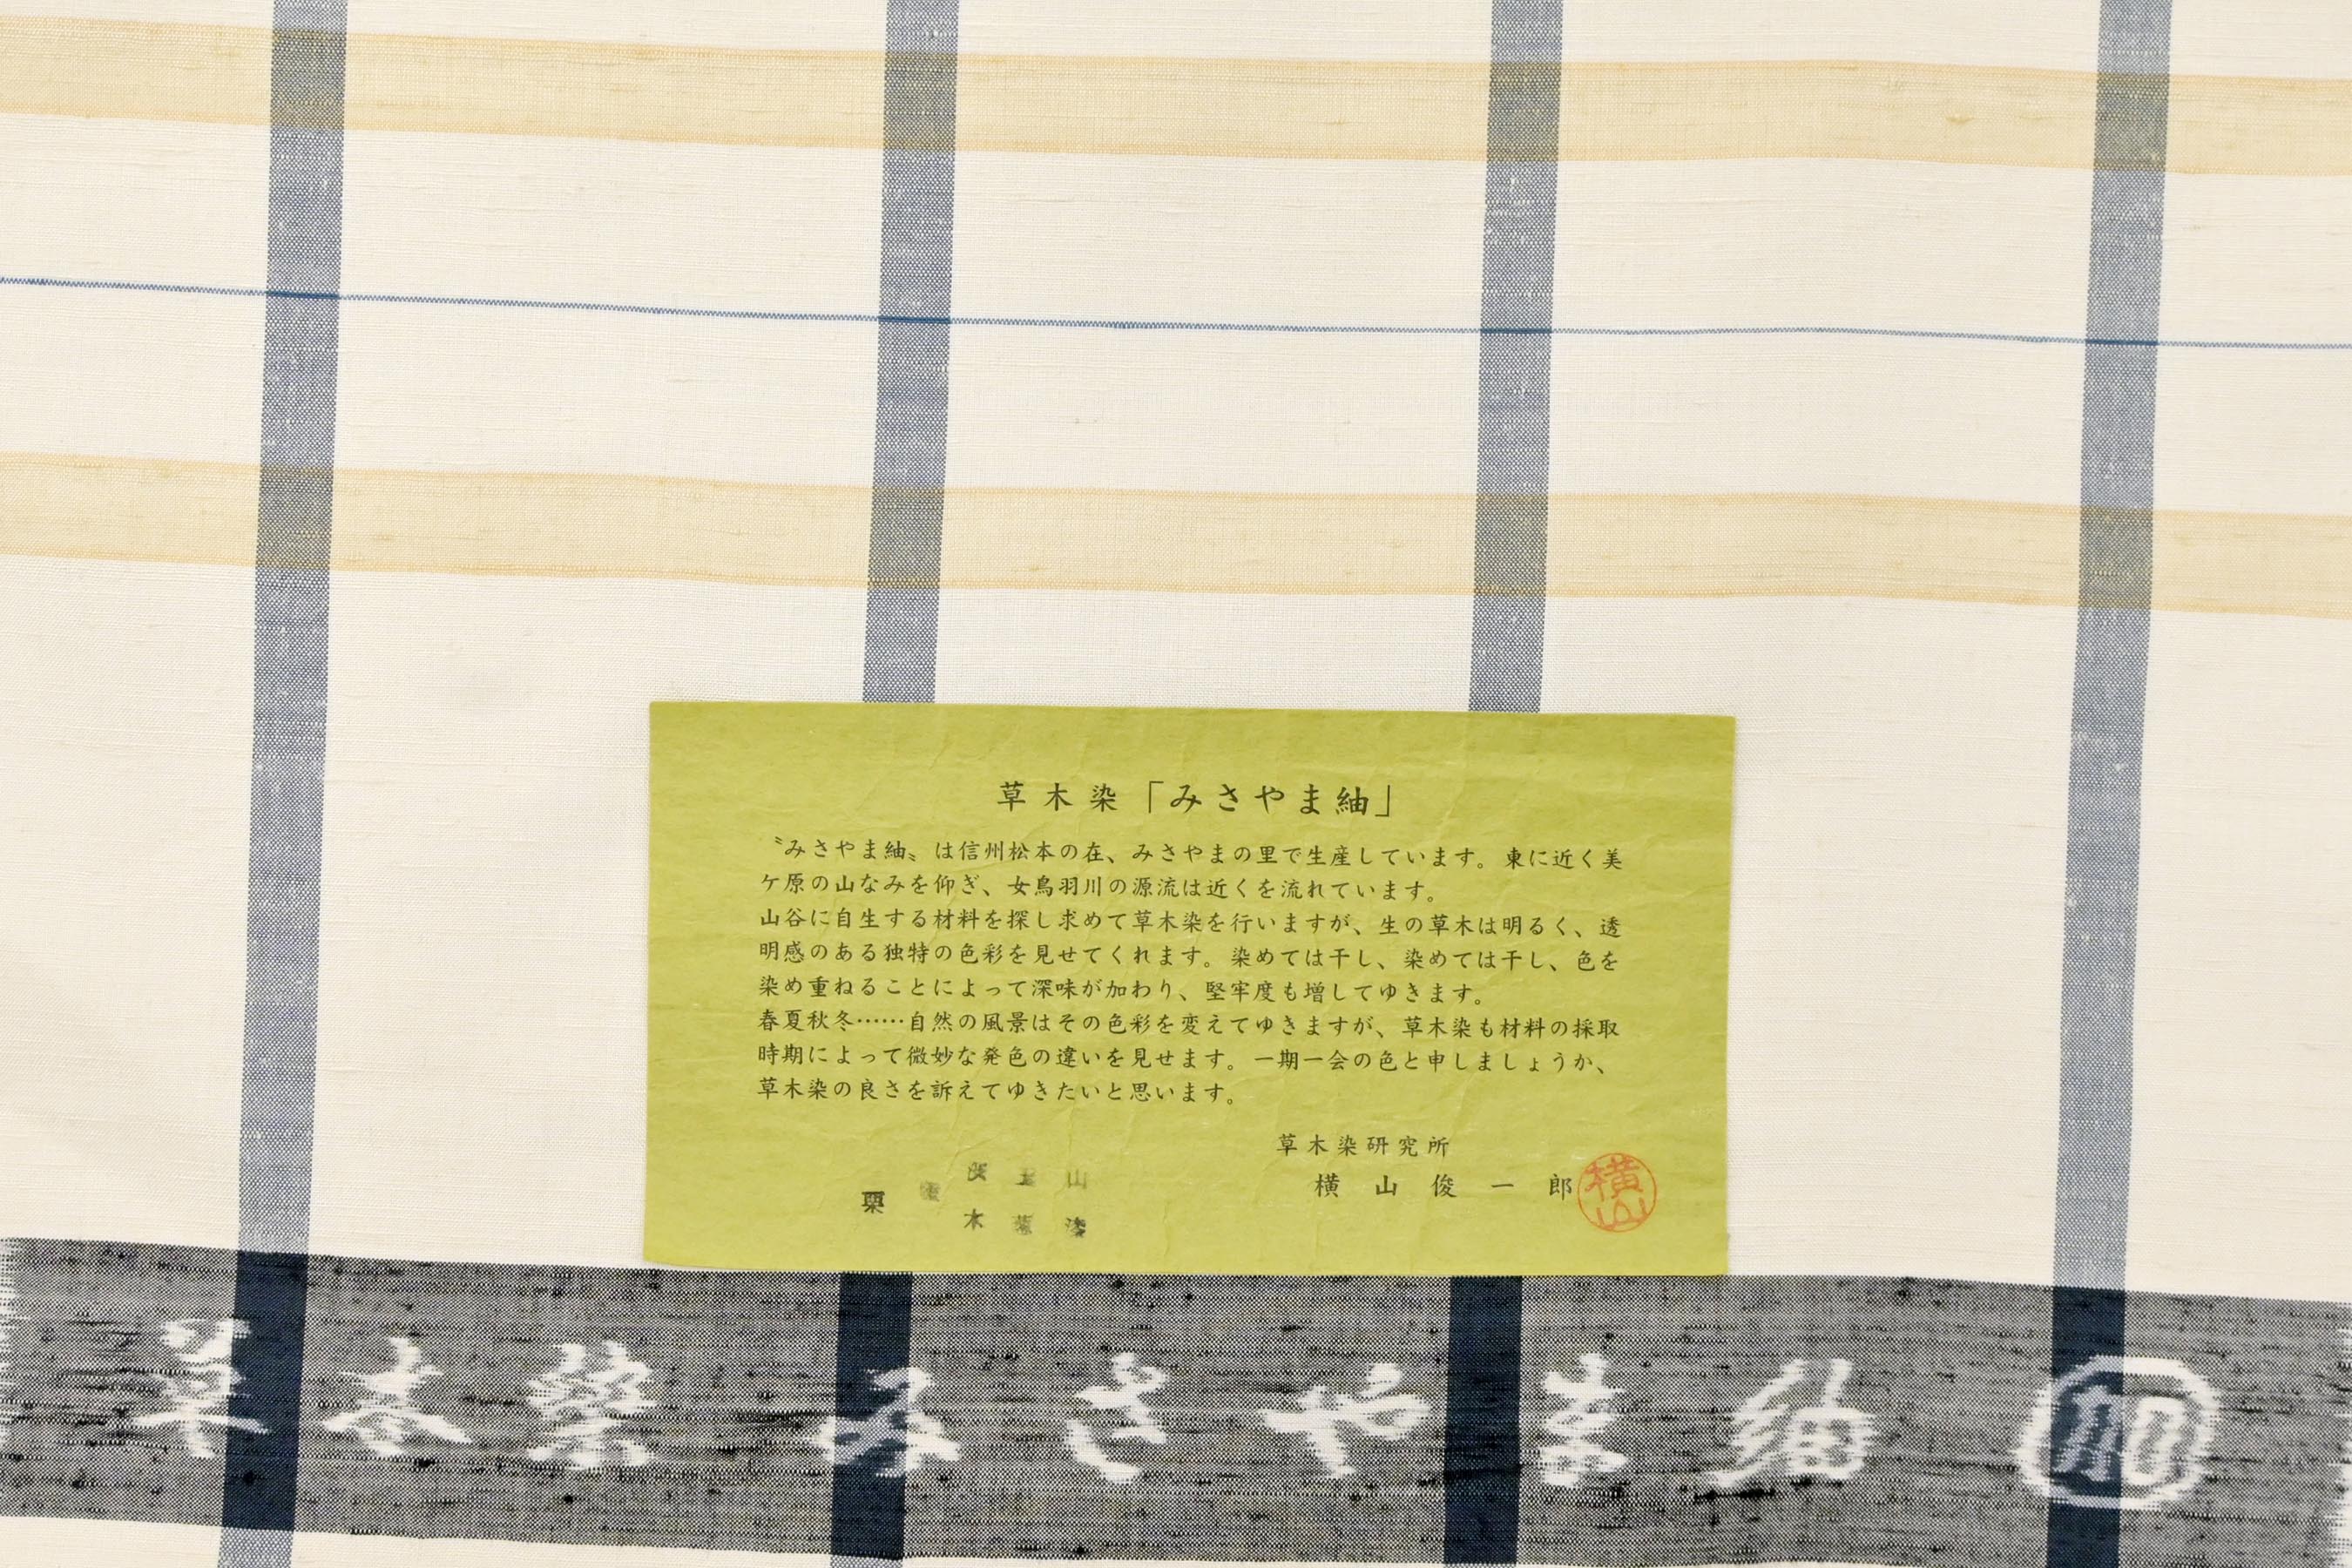 草木染「みさやま紬」
〝みさやま紬〟は信州松本の在、みさやまの里で生産しています。東に近く美
ケ原の山なみを仰ぎ、女鳥羽川の源流は近くを流れています。
山谷に自生する材料を探し求めて草木染を行いますが、生の草木は明るく、透
明感のある独特の色彩を見せてくれます。染めては干し、染めては干し、色を
染め重ねることによって深味が加わり、堅牢度も増してゆきます。
春夏秋冬……自然の風景はその色彩を変えてゆきますが、草木染も材料の採取
時期によって微妙な発色の違いを見せます。一期一会の色と申しましょうか、
草木染の良さを訴えてゆきたいと思います。
草木染研究所
横山俊一郎
横山
栗
山漆
草木染みさやま紬